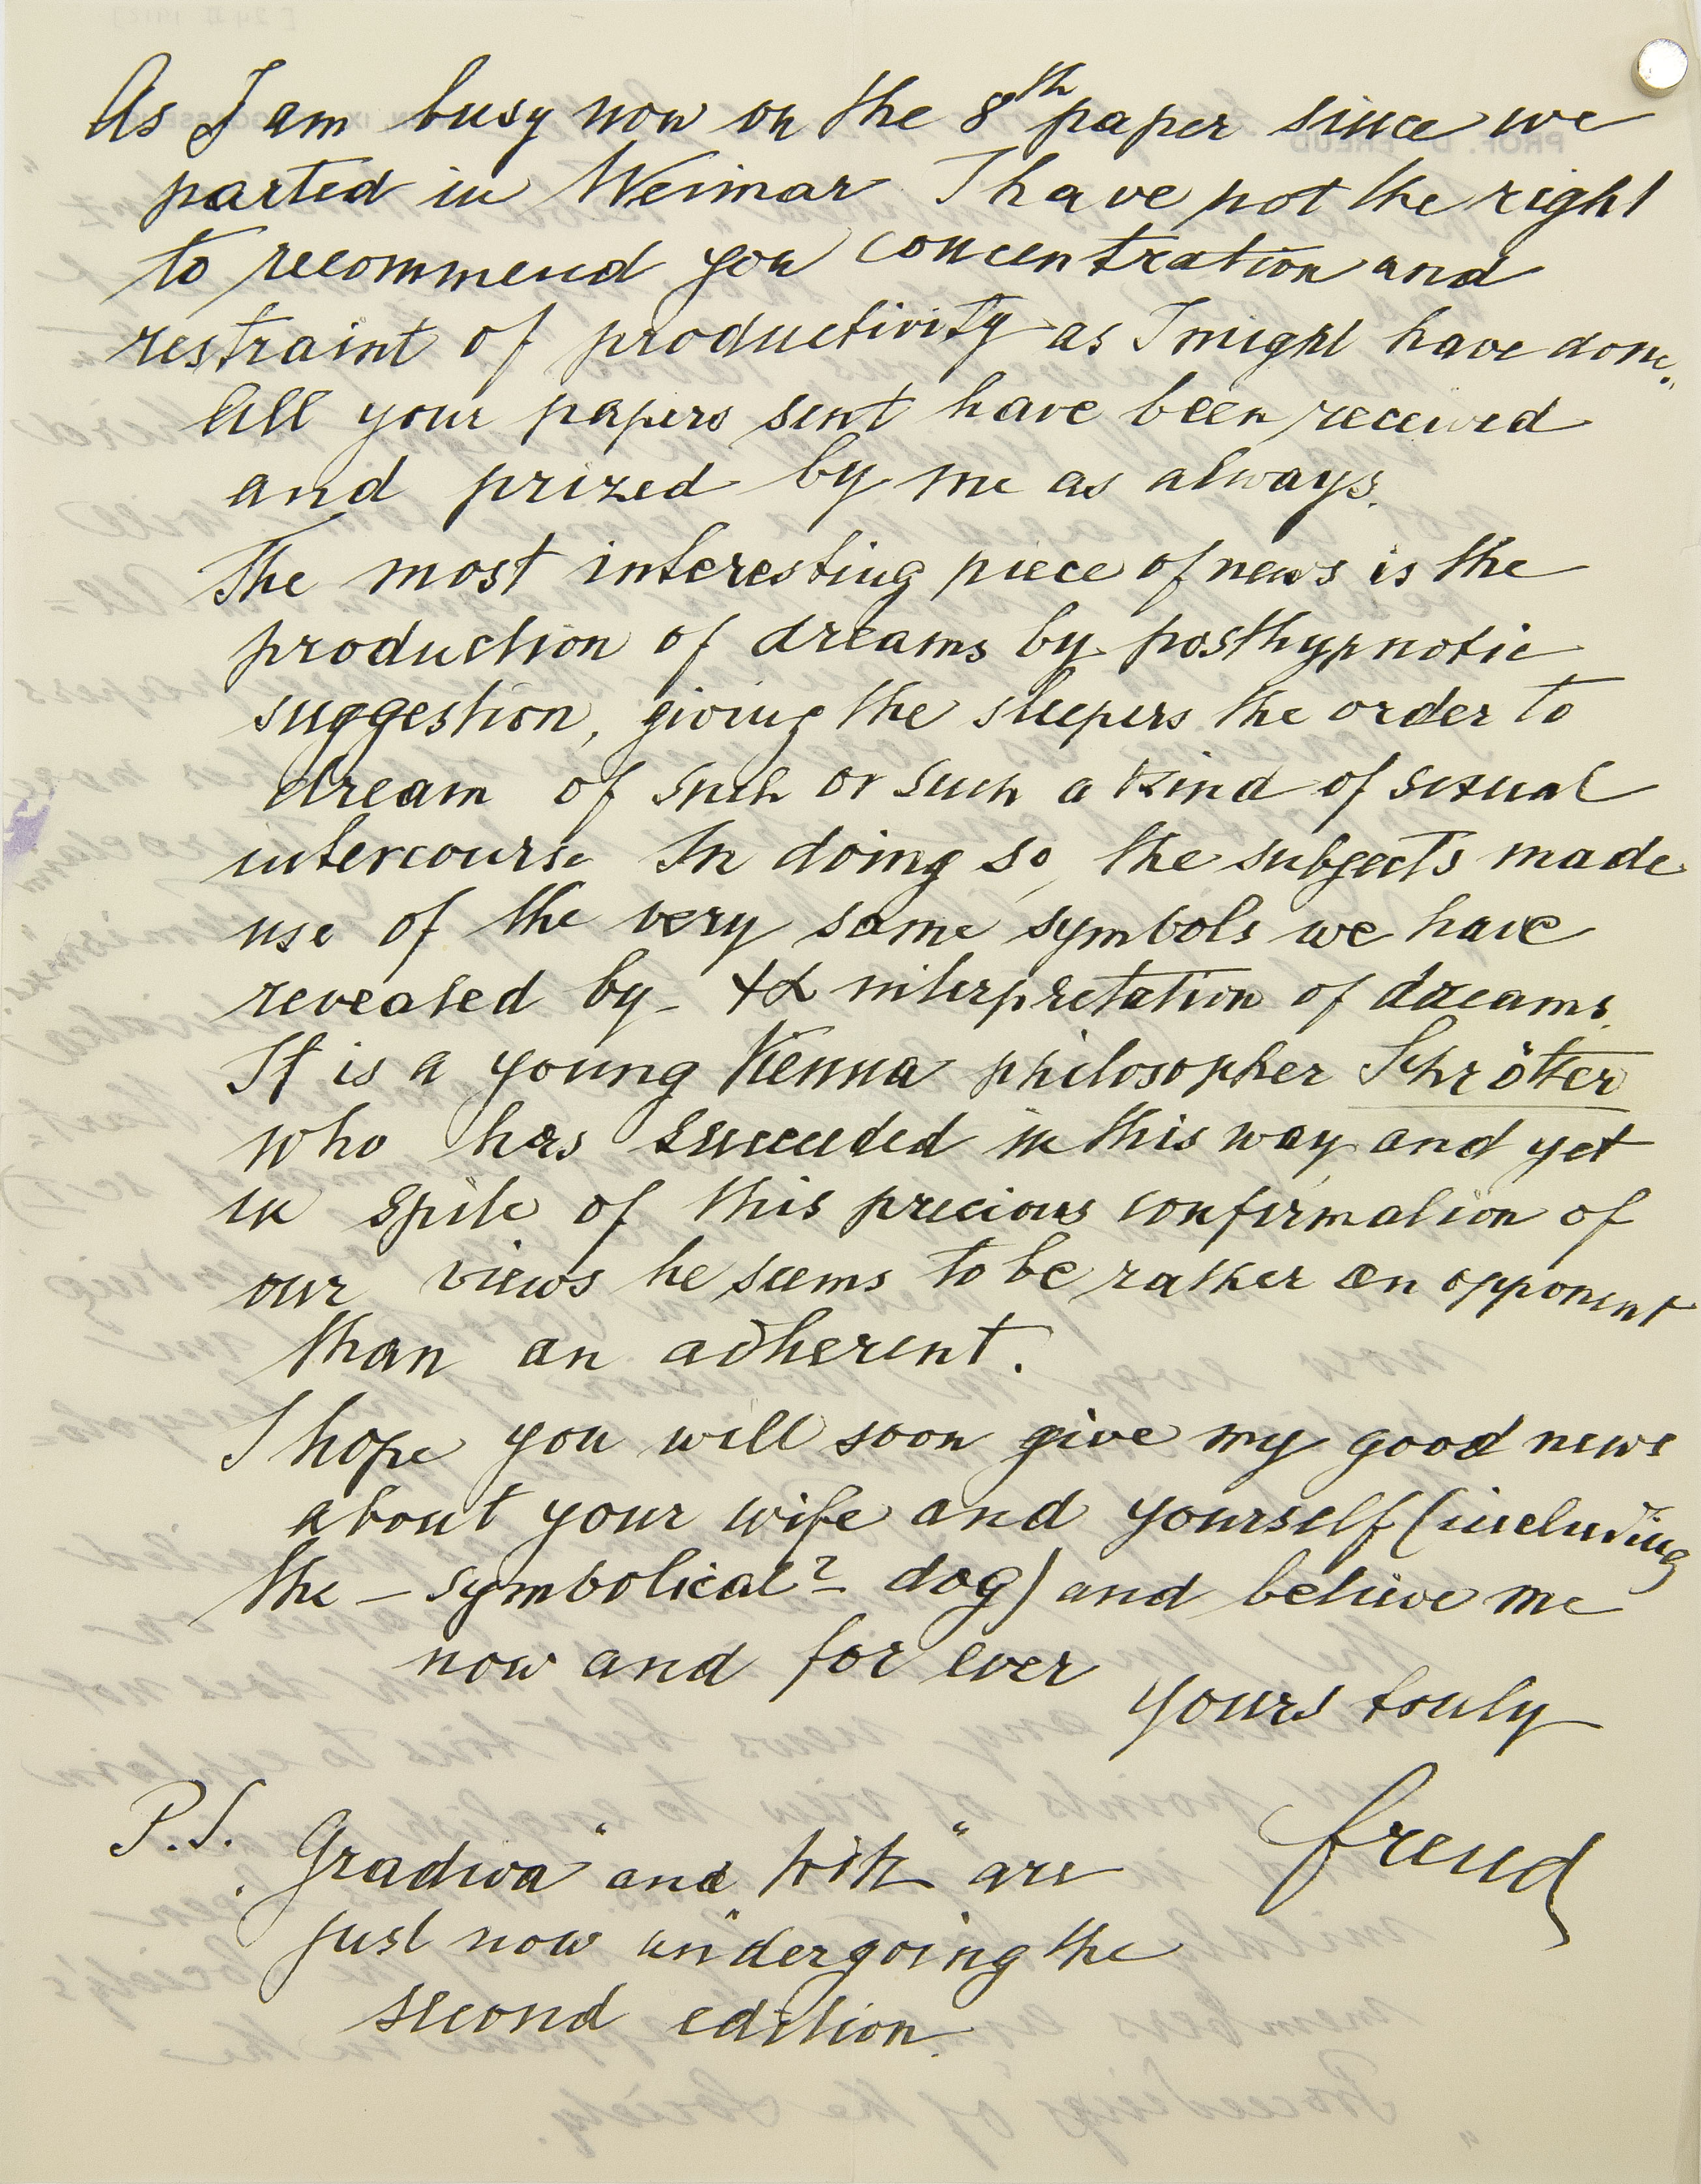 As I am busy now on the 8th paper since we
parted in Weimar I have not the right
to recommend you concentration and
restraint of productivity as I might have done.
All your papers sent have been received
and prized by me as always.
The most interesting piece of news is the
production of dreams by posthypnotic
suggestion, giving the sleepers the order to
dream of such or such a kind of sexual
intercourse In doing so, the subjects made
use of the very same symbols we have
revealed by interpretation of dreams.
It is a young Vienna philosopher Schrötter
who has succeeded in this way and yet
in spite of this precious confirmation of
our views he seems to be rather an opponent
than an adherent.
I hope you will soon give my good news
about your wife and yourself (including
the – symbolical? – dog) and believe me
now and for ever
yours truly
Freud
P.S. „Gradiva“ and „Witz“ are
just now undergoing the
second edition.